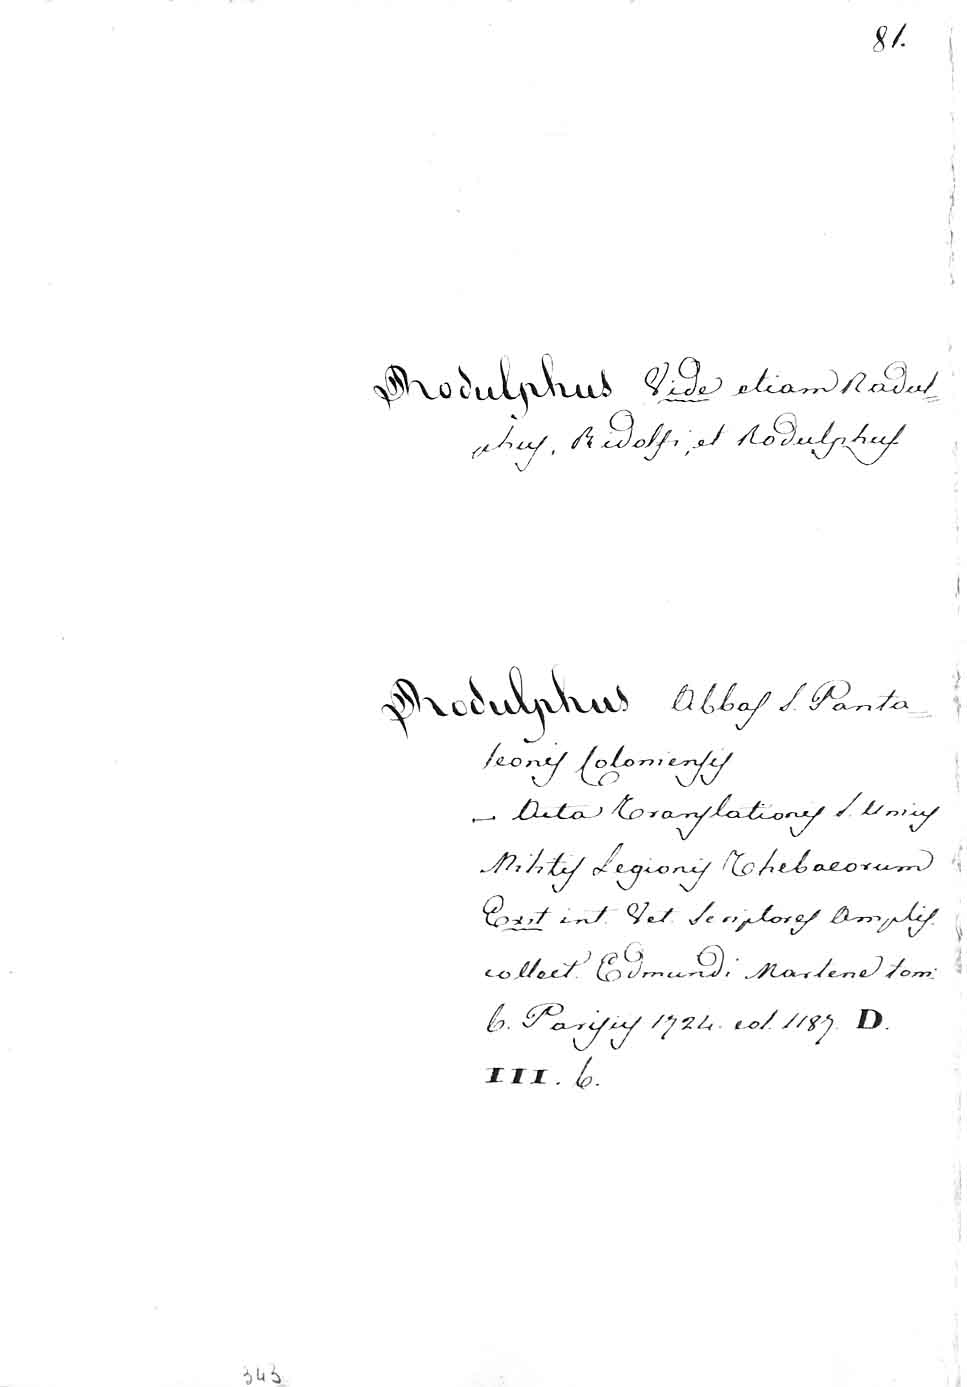 81.
Rodulphus Vide etiam Radul=
phus, Ridolfi, et Rodulphus
Rodulphus Abbas S. Panta=
leonis Coloniensis
— Acta Translationis S. Unius
Militis Legionis Thebaeorum
Exst int. Vet. Scriptores Amplis.
collect. Edmundi Martene tom.
6. Parisiis 1724. col. 1187. D.
III. 6.
343